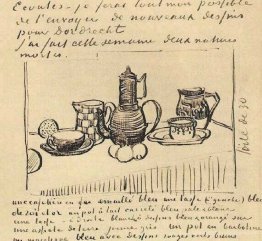 Ecoutes - je ferai tout mon possible
de t'envoyer de nouveaux dessins
pour Dordrecht
j'ai fait cette semaine deux natures
mortes.
toile de 30
une cafetière en fer émaillé bleu une tasse (à gauche) bleu
un pot à lait carrelé bleu
une tasse à droite blanche dessins bleus
une assiette de terre jaune gris un pot en barbotine
bleu avec dessins rouges verts bruns